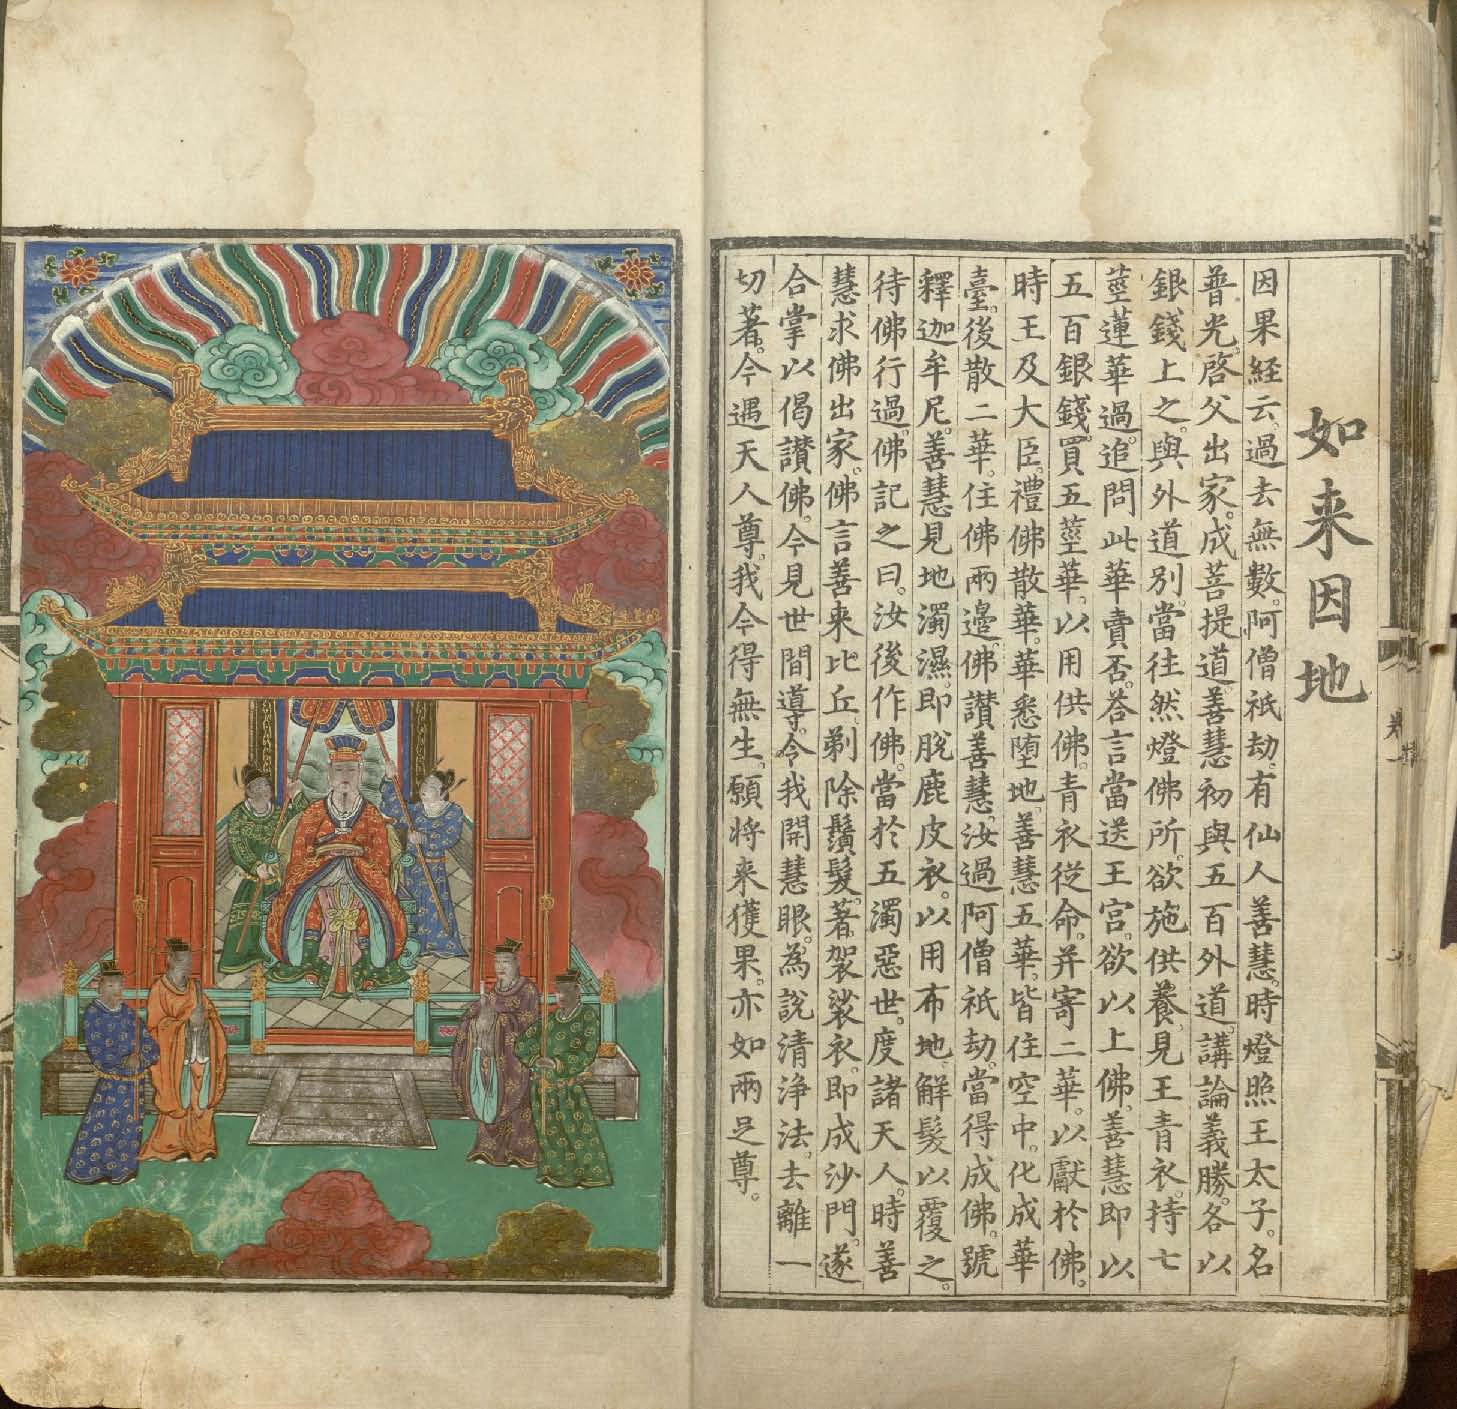 如来因地
因果経云。過去無數。阿僧祇劫。有仙人善慧。時燈照王太子。名
普光。啓父出家。成菩提道。善慧初與五百外道。講論義勝。各以
銀錢上之。與外道別。當往然燈佛所。欲施供養。見王青衣。持七
莖蓮華過。追問此華賣否。荅言當送王宮。欲以上佛。善慧即以
五百銀錢。買五莖華。以用供佛。青衣從命。并寄二華。以獻於佛。
時王及大臣。禮佛散華。華悉墮地。善慧五華。皆住空中。化成華
臺。後散二華。住佛兩邊。佛讃善慧。汝過阿僧祇劫。當得成佛。號
釋迦牟尼。善慧見地濁濕。即脫鹿皮衣。以用布地。解髮以覆之。
待佛行過。佛記之曰。汝後作佛。當於五濁惡世。度諸天人。時善
慧求佛出家。佛言善来比丘。剃除鬚髮。著袈裟衣。即成沙門。遂
合掌以偈讃佛。今見世間導。令我開慧眼。為說清浄法。去離一
切著。今遇天人尊。我今得無生。願将来獲果。亦如兩足尊。